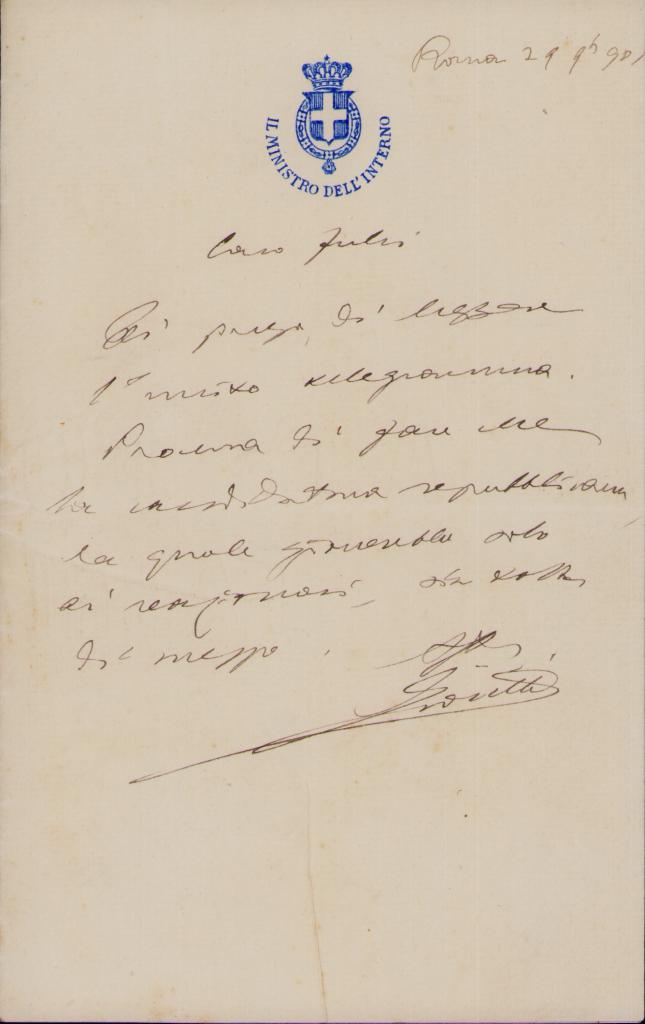 Roma 29 9bre 901
IL MINISTRO DELL'INTERNO
Caro Fulci
Ti prego di leggere
l'unito telegramma.
Procura di fare che
la candidatura repubblicana,
la quale gioverebbe solo
ai reazionari, sia tolta
di mezzo.
Aff
Giolitti